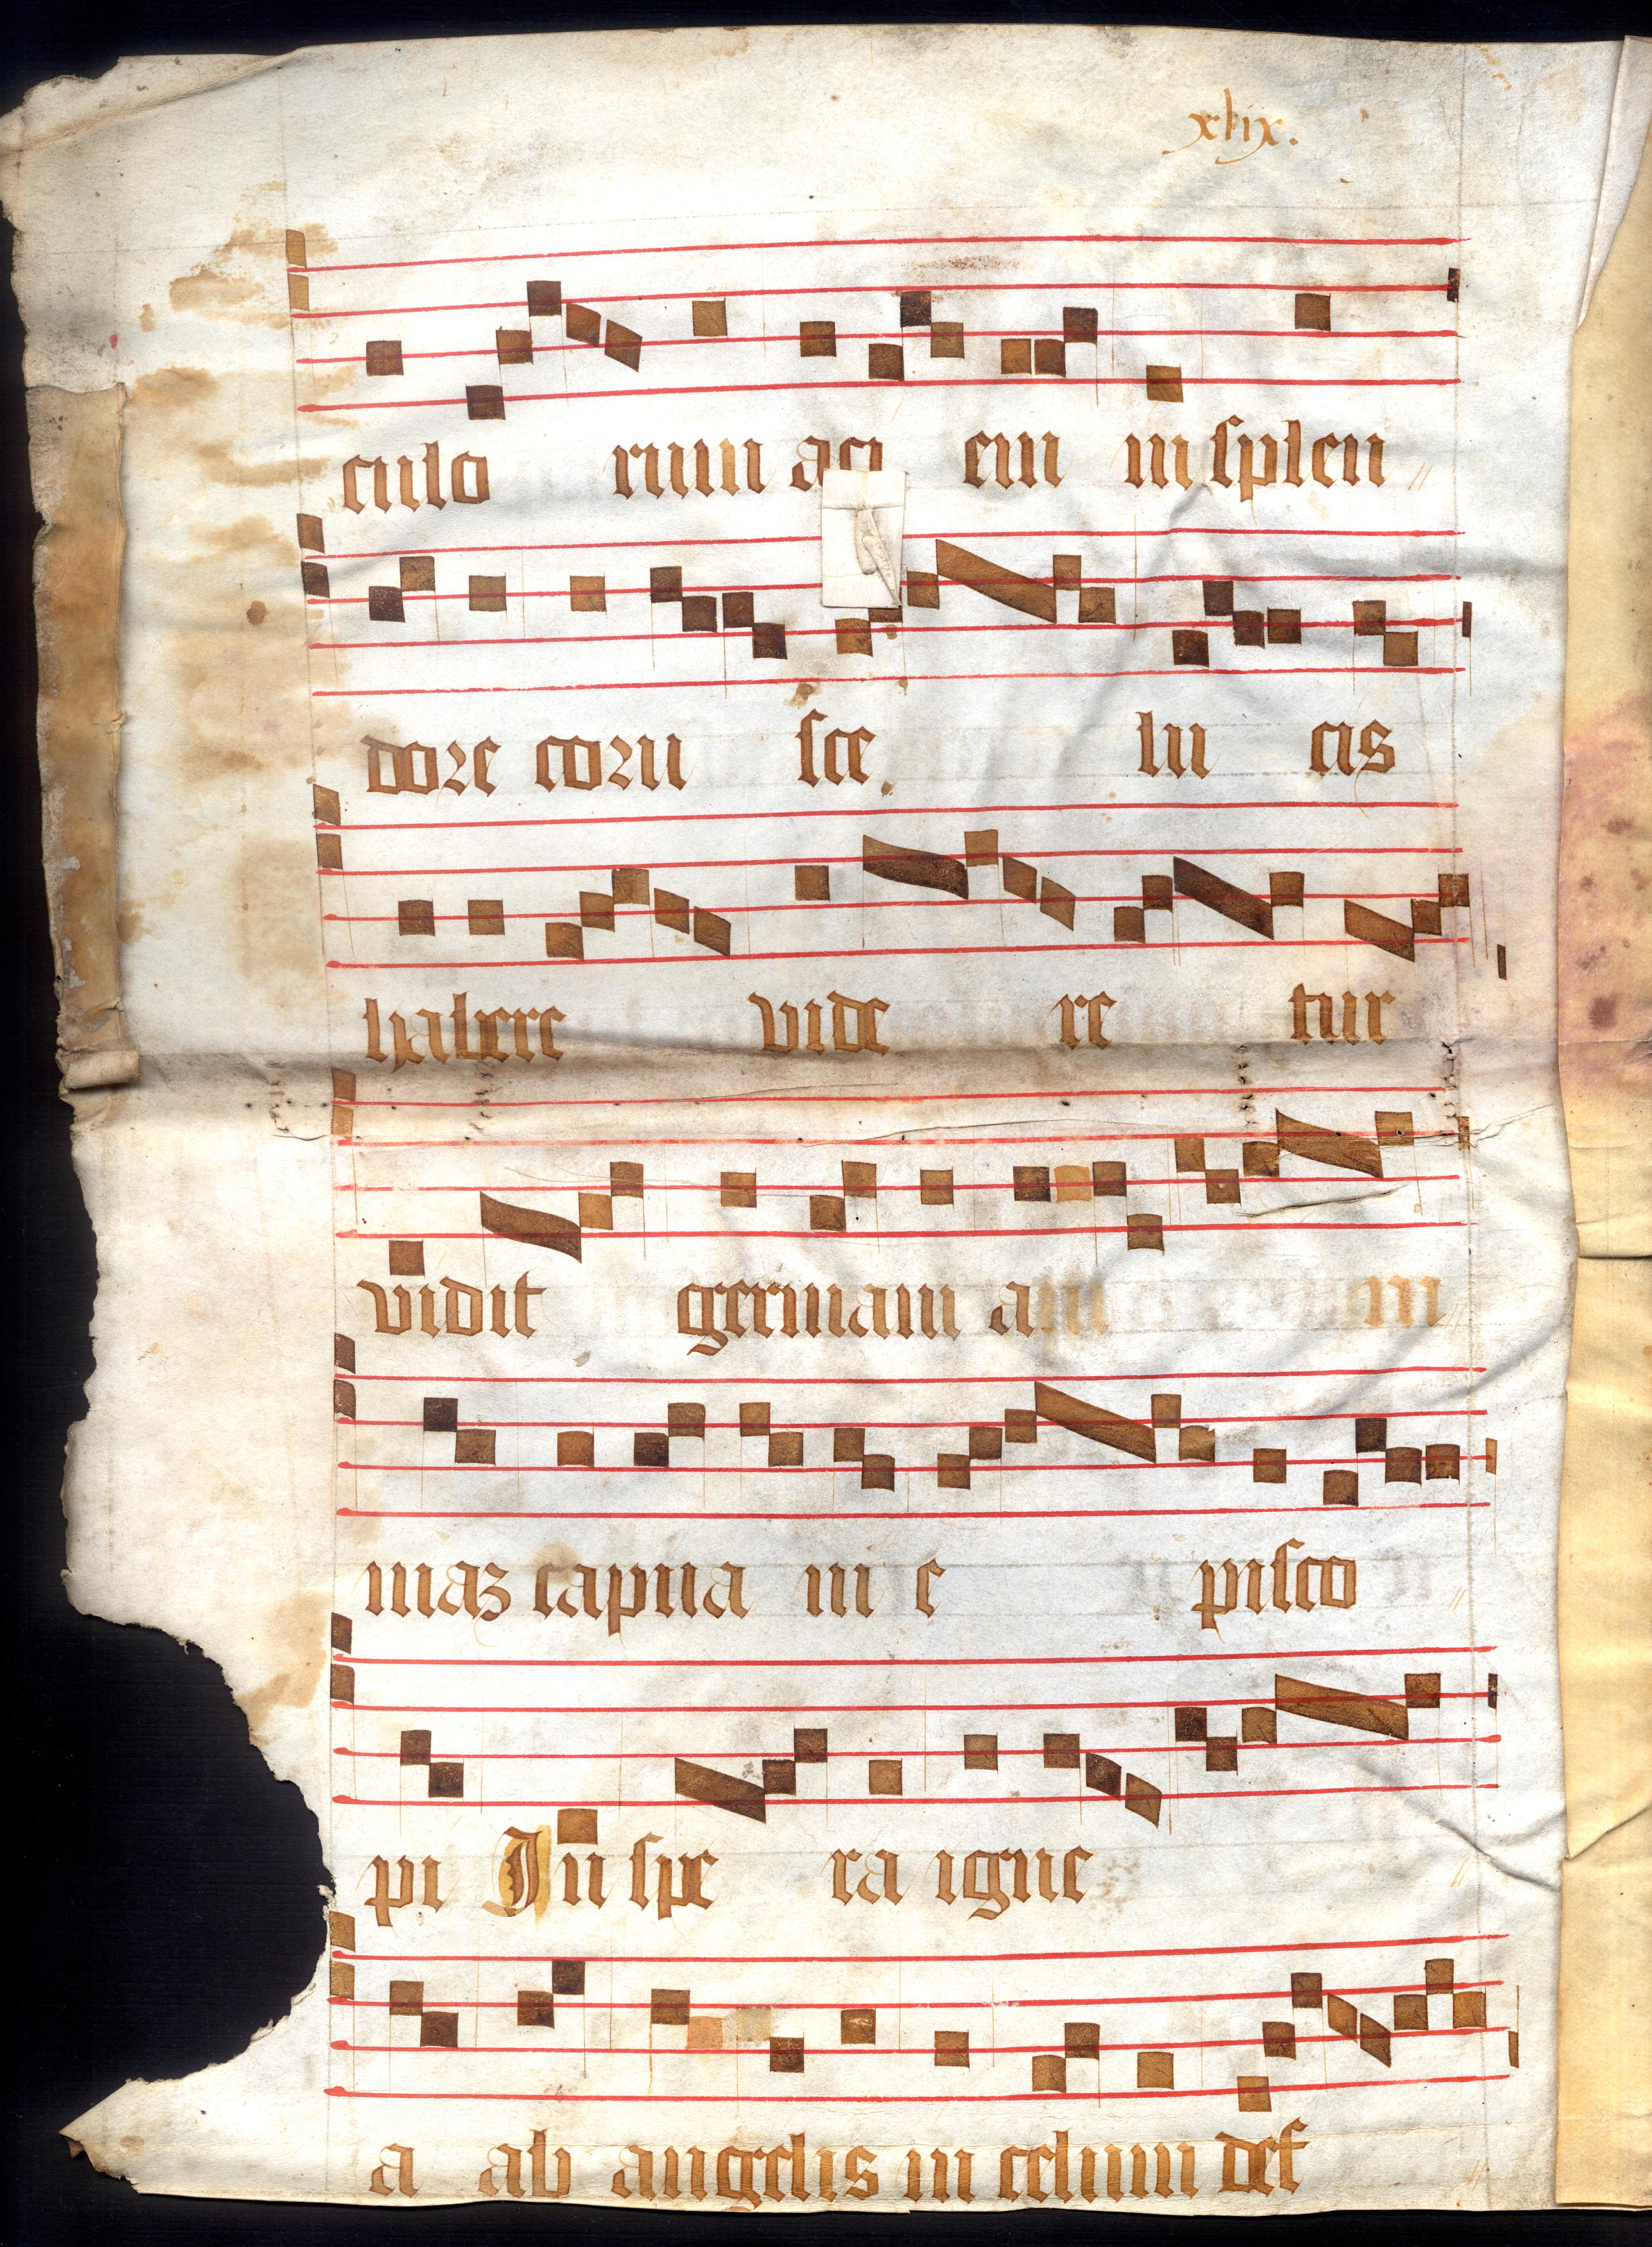 xlix.
culo rum aci em in splen //
dore coru sce lu cis
habere vide re tur
vidit germani ani m //
maz capua ni e pisco //
pi In spe ra igne //
a ab angelis in celum def //